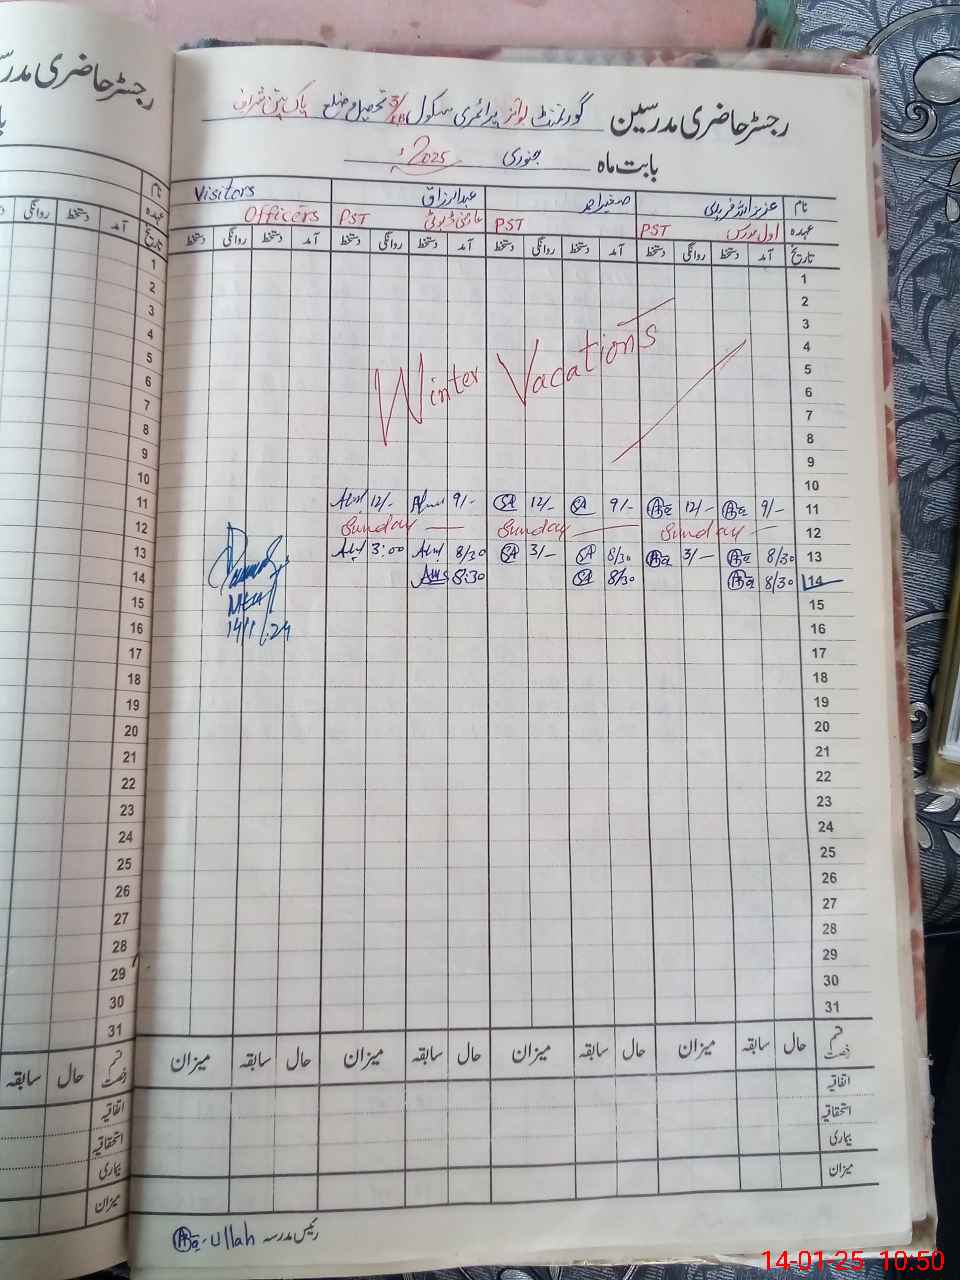 رجسٹر حاضری مدرسین گورنمنٹ بوائز پرائمری سکول تحصیل و ضلع پاک پتن شریف
بابت ماہ جنوری 2025ء
نام عزیز اللہ فریدی صغیر احمد عبدالرزاق Visitors
عہدہ اول مدرس PST PST عارضی ڈیوٹی PST Officers
تاریخ آمد دستخط روانگی دستخط آمد دستخط روانگی دستخط آمد دستخط روانگی دستخط آمد دستخط روانگی دستخط
1
2
3
4
5
6
7
8
9
10
Winter Vacations
11 9/- 12/- 9/- 12/- 9/- 12/-
12 Sunday Sunday Sunday
13 8/30 3/- 8/30 3/- 8/30 3:00
14 8/30 8/30 8:30
14/1/24
15
16
17
18
19
20
21
22
23
24
25
26
27
28
29
30
31
قسم رخصت حال سابقہ میزان حال سابقہ میزان حال سابقہ میزان حال سابقہ میزان
اتفاقیہ
استحقاقیہ
بیماری
میزان
رئیس مدرسہ Ullah
رجسٹر حاضری مدرس
با
نام
عہدہ
تاریخ آمد دستخط روانگی
1
2
3
4
5
6
7
8
9
10
11
12
13
14
15
16
17
18
19
20
21
22
23
24
25
26
27
28
29
30
31
قسم رخصت حال سابقہ
اتفاقیہ
استحقاقیہ
بیماری
میزان
14-01-25 10:50